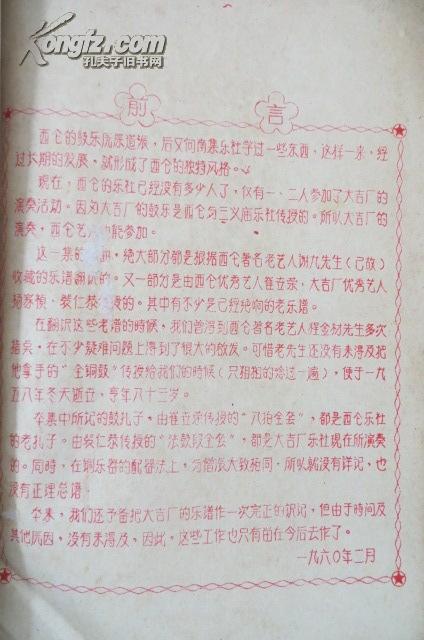 Kongfz.com
孔夫子旧书网
前言
西仓的鼓乐原系道派，后又向南集乐社学过一些东西，这样一来，经
过长期的发展，就形成了西仓的独特风格。
现在，西仓的乐社已经没有多少人了，仅有一、二人参加了大吉厂的
演奏活动。因为大吉厂的鼓乐是西仓与三义庙乐社传授的。所以大吉厂的
演奏，西仓艺人也能参加。
这一集的 曲，绝大部分都是根据西仓著名老艺人谢九先生（已故）
收藏的乐谱翻译的。又一部分是由西仓优秀艺人崔立荣、大吉厂优秀艺人
杨家祯、裴仁荣 授的。其中有不少是已经绝响的老乐谱。
在翻译这些老谱的时候，我们曾得到西仓著名老艺人程金材先生多次
指英，在不少疑难问题上得到了很大的启发。可惜老先生还没有来得及把
他拿手的“全铜鼓”传授给我们的时候（只粗粗的念过一遍），便于一九
五八年冬天逝世，享年八十三岁。
本集中所记的鼓扎子，由崔立荣传授的“八拍全套”，都是西仓乐社
的老扎子。由裴仁荣传授的“法鼓段全套”，都是大吉厂乐社现在所演奏
的。同时，在铜乐器的配器法上，与僧派大致相同，所以就没有详记，也
没有正理总谱。
本来，我们还予备把大吉厂的乐谱作一次完正的译记，但由于时间及
其他原因，没有来得及，因此，这些工作也只有留在今后去作了。
一九六〇年二月